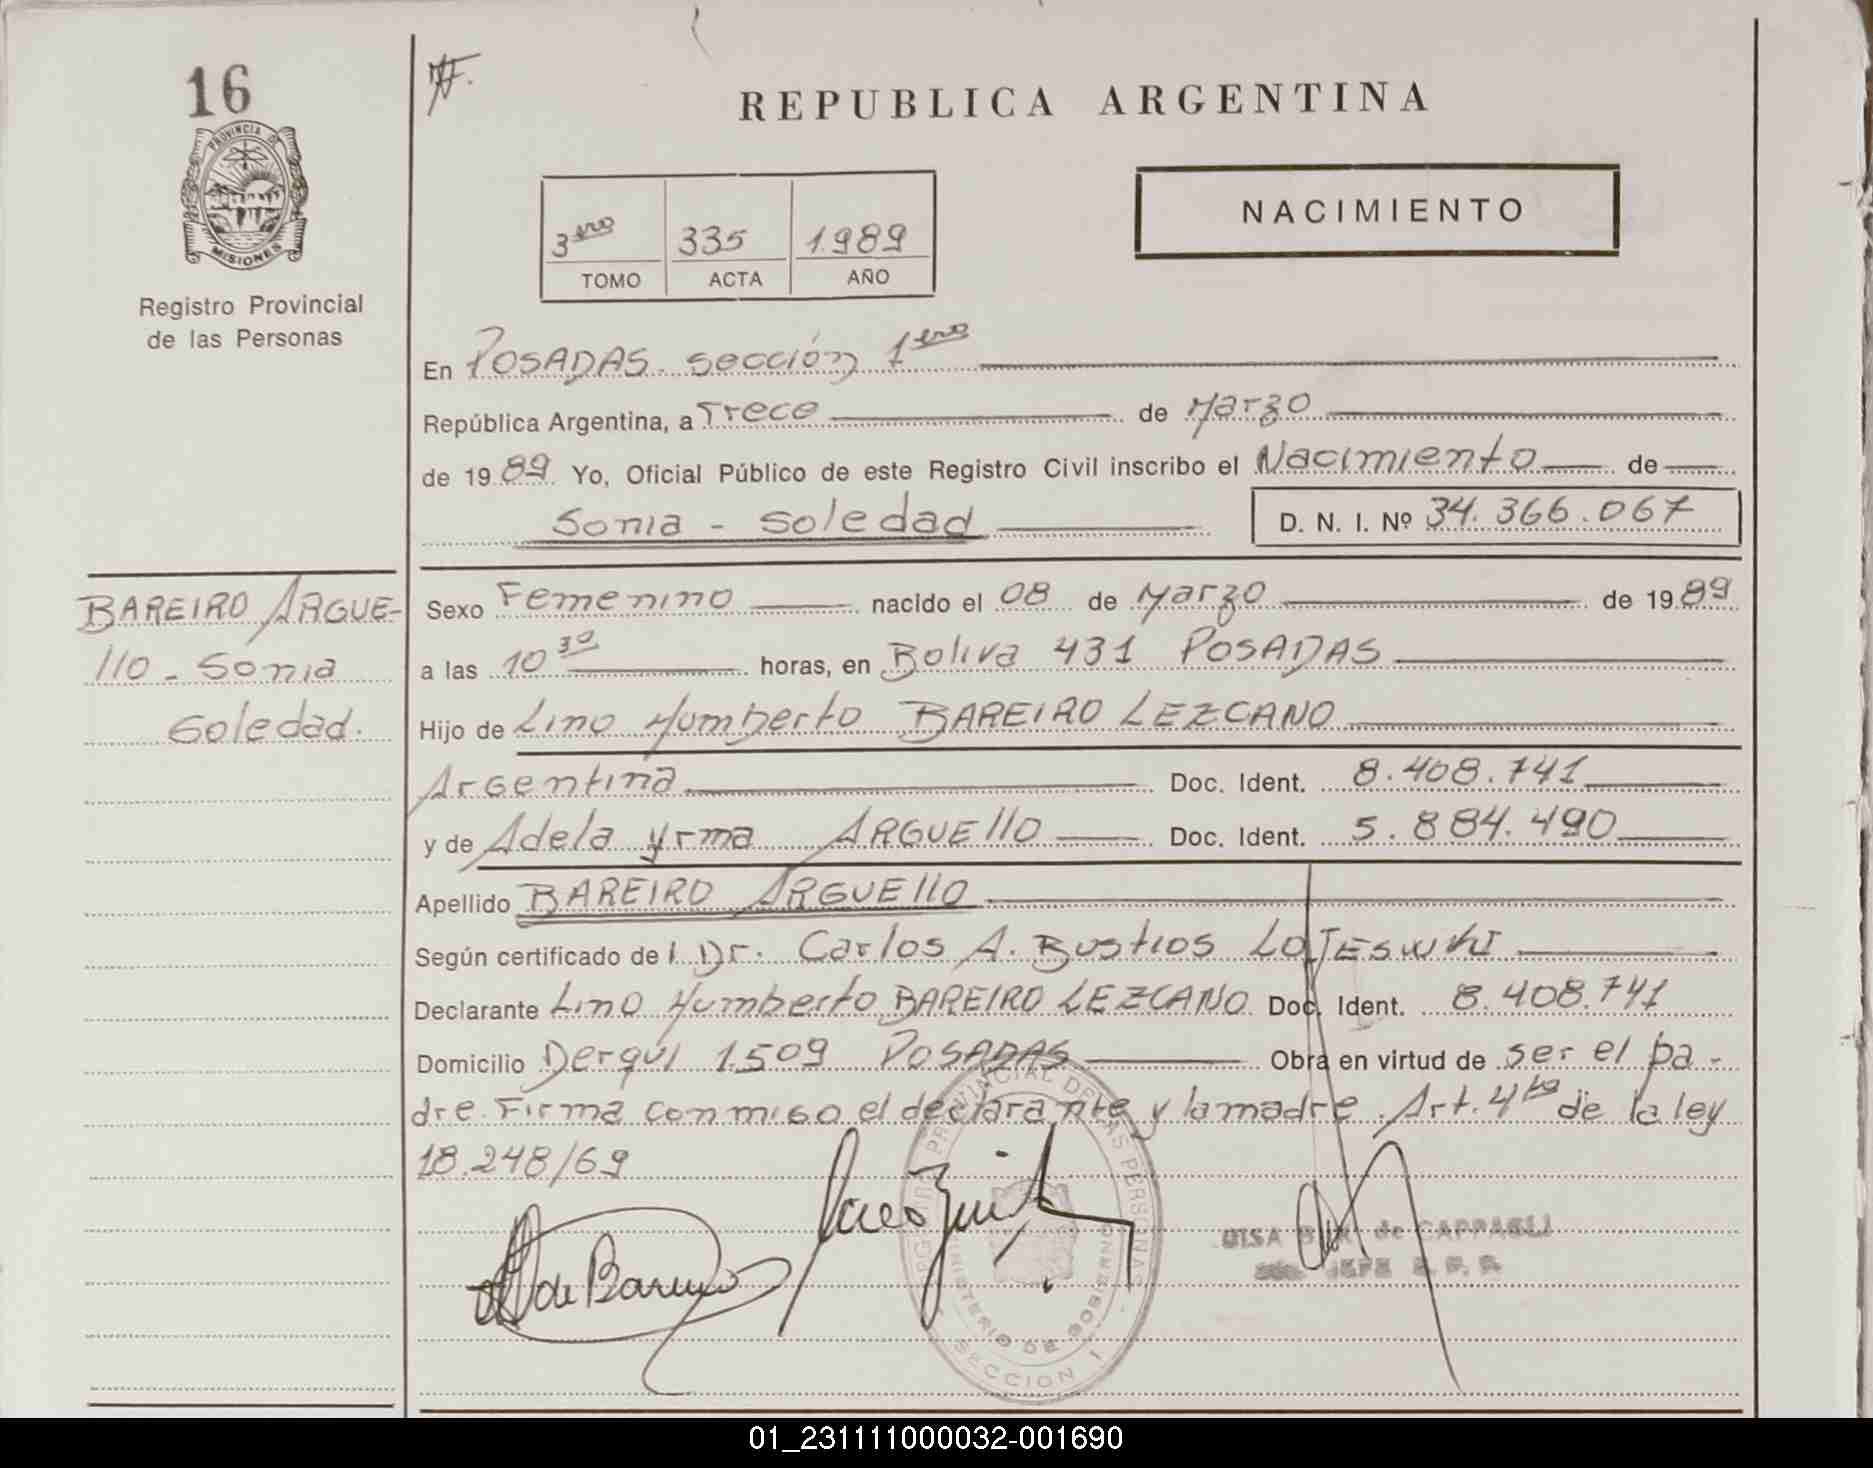 16
PROVINCIA DE
MISIONES
Registro Provincial
de las Personas
REPUBLICA ARGENTINA
NACIMIENTO
3ero 335 1.989
TOMO ACTA AÑO
En POSADAS sección 1era
República Argentina, a Trece de Marzo
de 1989 Yo, Oficial Público de este Registro Civil inscribo el Nacimiento de
Sonia - Soledad D. N. I. Nº 34.366.067
BAREIRO ARGUE-
llo - Sonia
Soledad.
Sexo Femenino nacido el 08 de Marzo de 1989
a las 10 30 horas, en Boliva 431 POSADAS
Hijo de Lino Humberto BAREIRO LEZCANO
Argentina Doc. Ident. 8.408.741
y de Adela Yrma ARGUEllO Doc. Ident. 5.884.490
Apellido BAREIRO ARGUEllO
Según certificado del Dr. Carlos A. Bustios
Declarante Lino Humberto BAREIRO LEZCANO Doc. Ident. 8.408.741
Domicilio Derqui 1.509 POSADAS Obra en virtud de ser el pa-
dre. Firma conmigo el declarante y la madre. Art. 4to de la ley
18.248/69
de Bareiro
REGISTRO PROVINCIAL DE LAS PERSONAS
MINISTERIO DE GOBIERNO
SECCION 1
de CAPPAGLI
JEFE R. P. P.
01_231111000032-001690